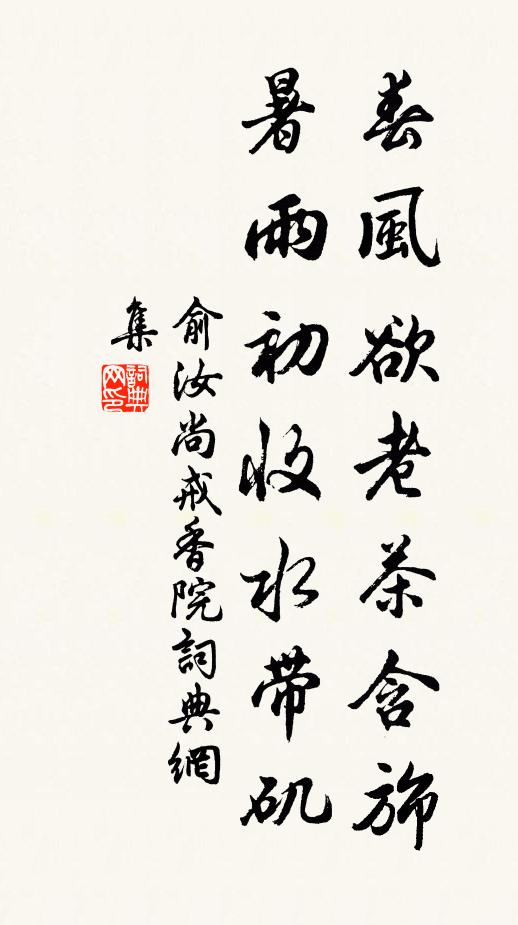 春風欲老茶含旆
暑雨初收水帶矶
俞汝尚戒香院詞典網
集
詞典
网印